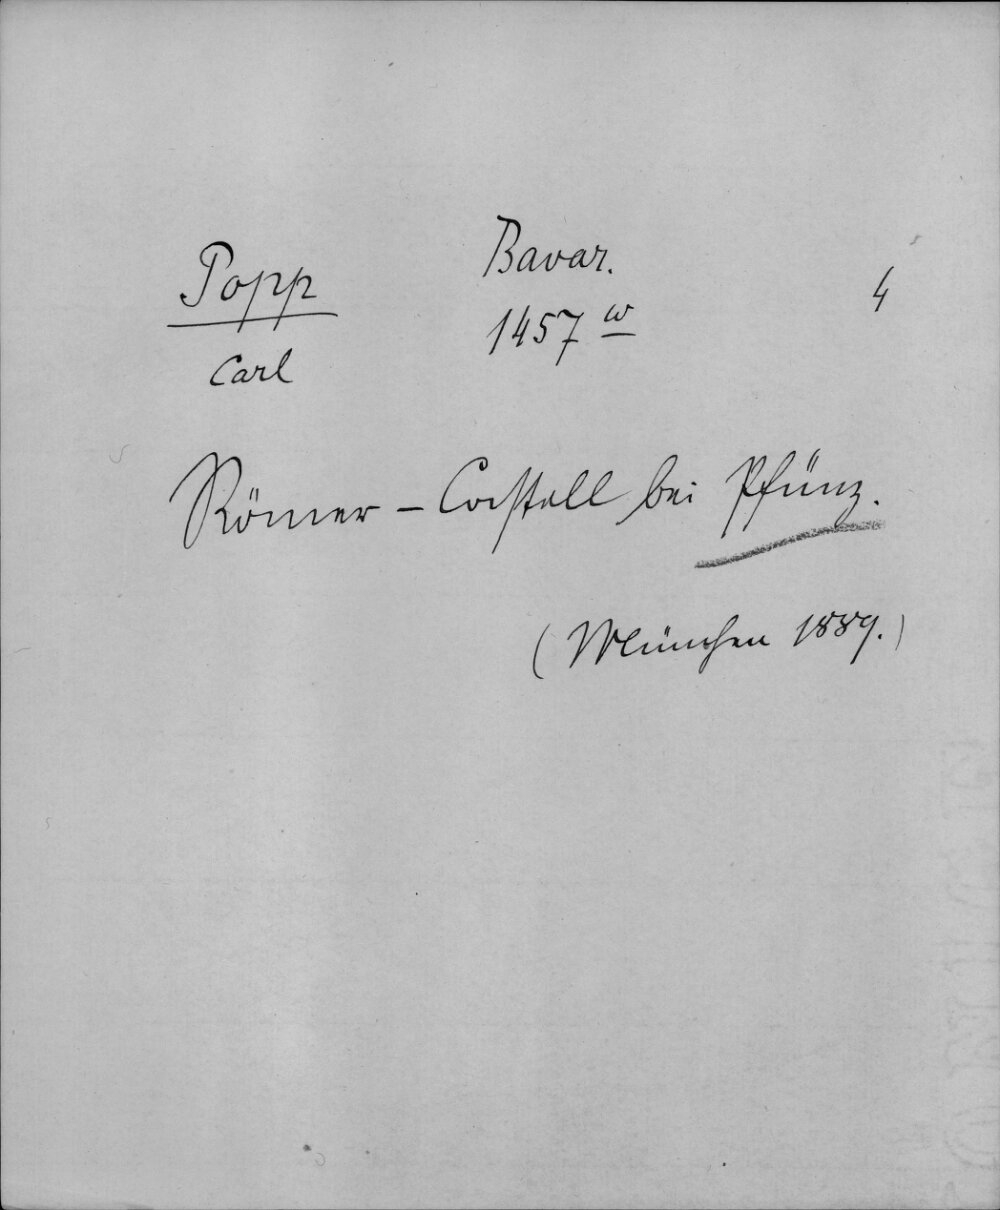 Popp
Carl
Bavar.
1457 w
4
Römer-Castell bei Pfünz.
(München 1889.)